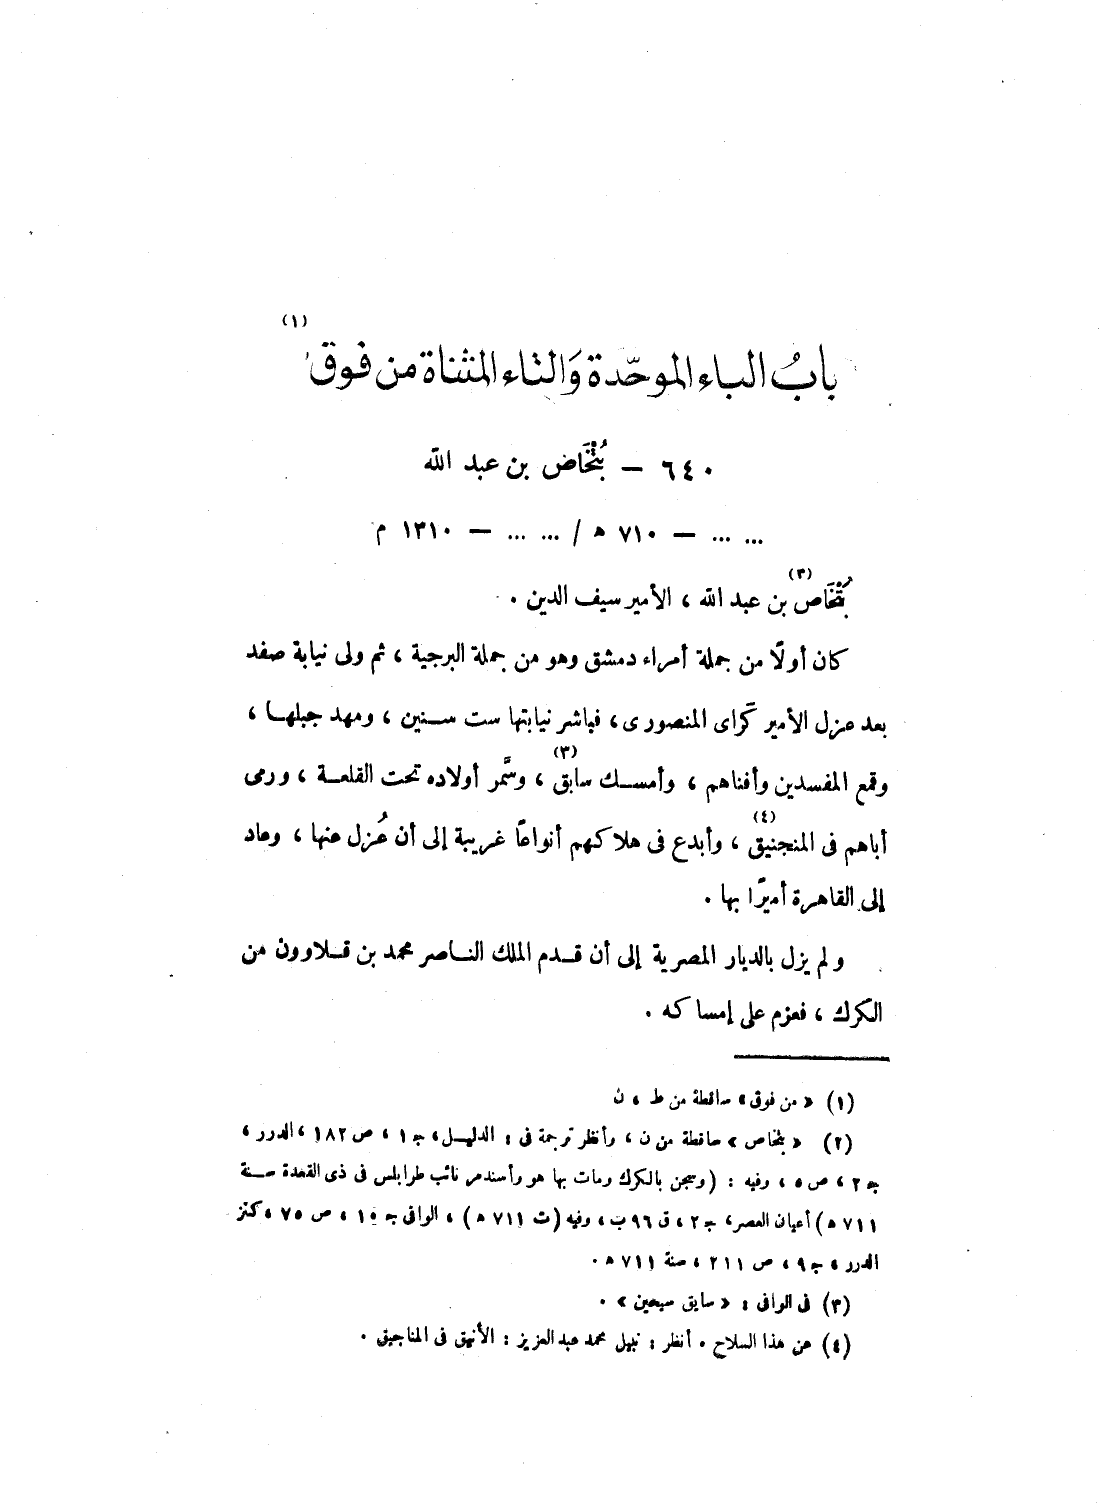 (١)
بابُ الباء الموحّدة وَالتاء المثناة من فوق
٦٤٠ – بُتْخَاص بن عبد الله
... ... – ٧١٠ ه / ... ... – ١٣١٠ م
بُتْخَاص (٢) بن عبد الله ، الأمير سيف الدين .
كان أولًا من جملة أمراء دمشق وهو من جملة البرجية ، ثم ولى نيابة صفد
بعد عزل الأمير كَراى المنصورى ، فباشر نيابتها ست سنين ، ومهد جبلها ،
وقمع المفسدين وأفناهم ، وأمسك سابق (٣) ، وسَّمر أولاده تحت القلعة ، ورمى
أباهم فى المنجنيق (٤) ، وأبدع فى هلاكهم أنواعًا غريبة إلى أن عُزل عنها ، وعاد
إلى القاهرة أميرًا بها .
ولم يزل بالديار المصرية إلى أن قدم الملك الناصر محمد بن قلاوون من
الكرك ، فعزم على إمساكه .
(١) « من فوق » ساقطة من ط ، ن
(٢) « بتخاص » ساقطة من ن ، وأنظر ترجمة فى : الدليل ، ج ١ ، ص ١٨٢ ، الدرر ،
ج ٢ ، ص ٥ ، وفيه : (وسجن بالكرك ومات بها هو وأسندمر نائب طرابلس فى ذى القعدة سنة
٧١١ ه) أعيان العصر ، ج ٢ ، ق ٩٦ ب ، وفيه (ت ٧١١ ه) ، الوافى ج ١٠ ، ص ٧٥ ، كنز
الدرر ، ج ٩ ، ص ٢١١ ، سنة ٧١١ ه .
(٣) فى الوافى : « سابق سيحين » .
(٤) عن هذا السلاح . أنظر : نبيل محمد عبد العزيز : الأنيق فى المناجيق .